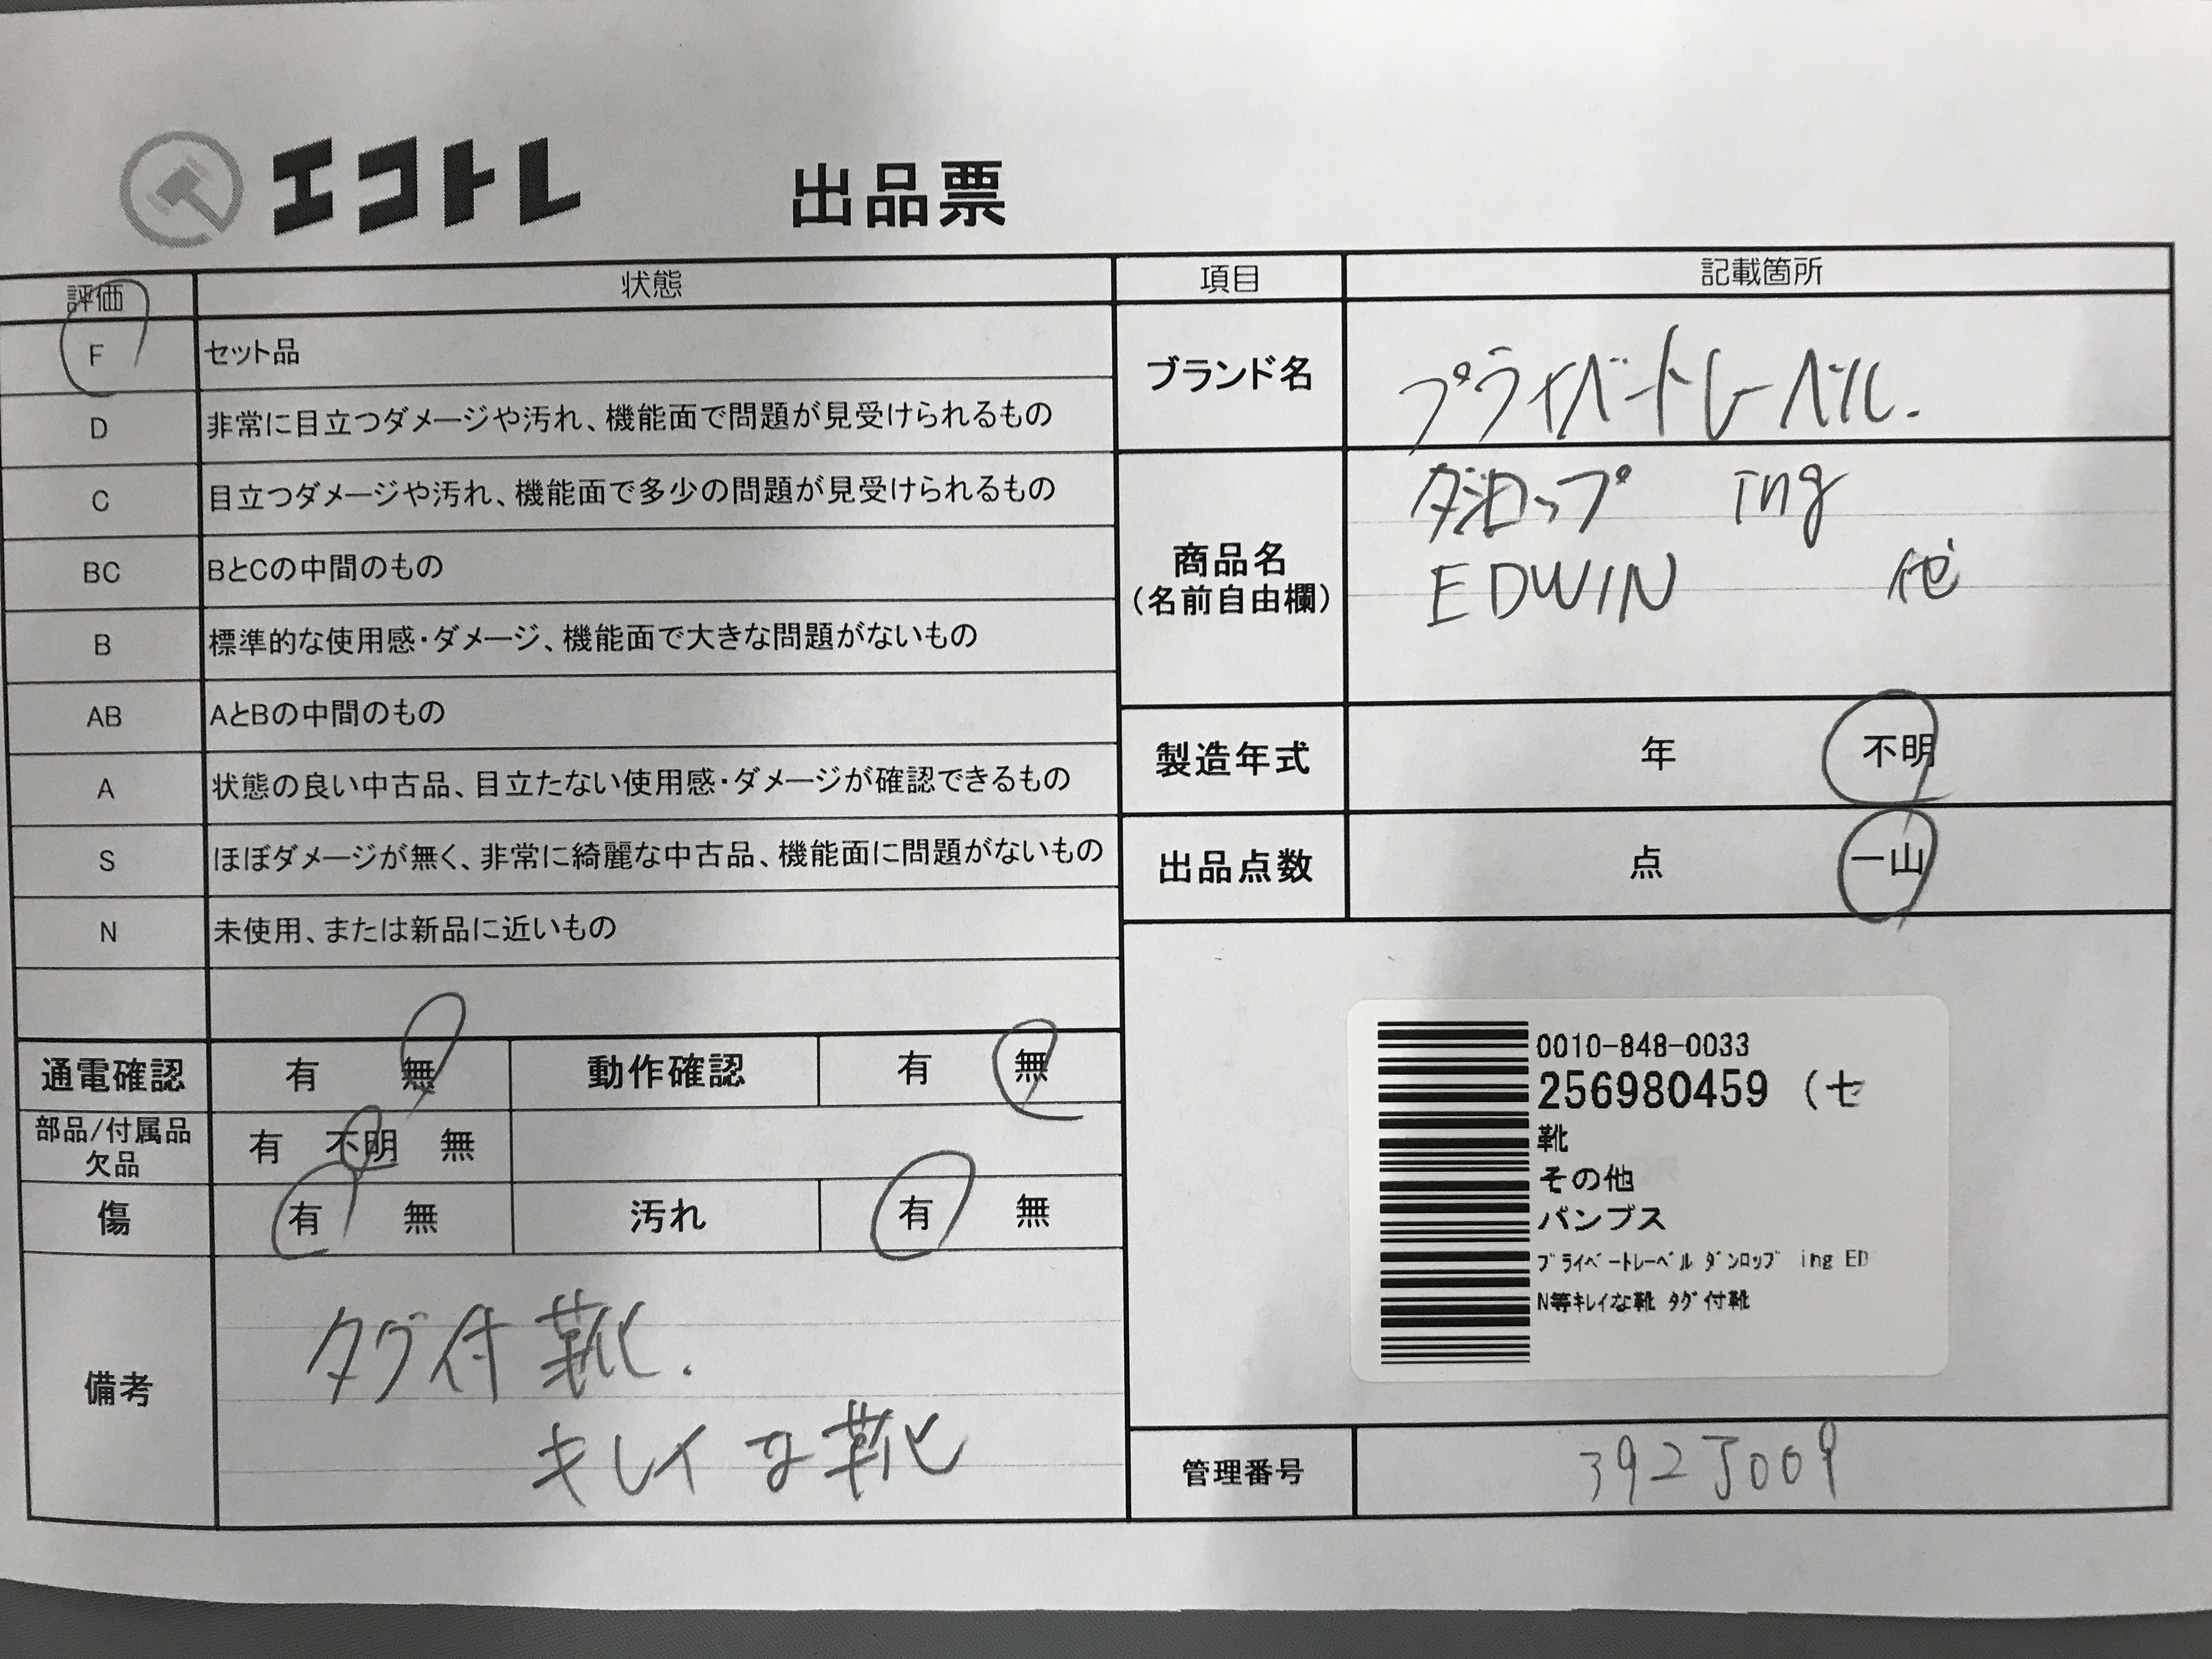 エコトレ 出品票
評価 状態
F セット品
D 非常に目立つダメージや汚れ、機能面で問題が見受けられるもの
C 目立つダメージや汚れ、機能面で多少の問題が見受けられるもの
BC BとCの中間のもの
B 標準的な使用感・ダメージ、機能面で大きな問題がないもの
AB AとBの中間のもの
A 状態の良い中古品、目立たない使用感・ダメージが確認できるもの
S ほぼダメージが無く、非常に綺麗な中古品、機能面に問題がないもの
N 未使用、または新品に近いもの
通電確認 有 無 動作確認 有 無
部品/付属品
欠品 有 不明 無
傷 有 無 汚れ 有 無
備考
タグ付靴.
キレイな靴
項目 記載箇所
ブランド名 プライベートレーベル.
商品名
(名前自由欄)
ダンロップ ing
EDWIN 他
製造年式 年 不明
出品点数 点 一山
0010-848-0033
256980459 (セ
靴
その他
パンプス
プライベートレーベル ダンロップ ing ED
N等キレイな靴 タグ付靴
管理番号 392J009